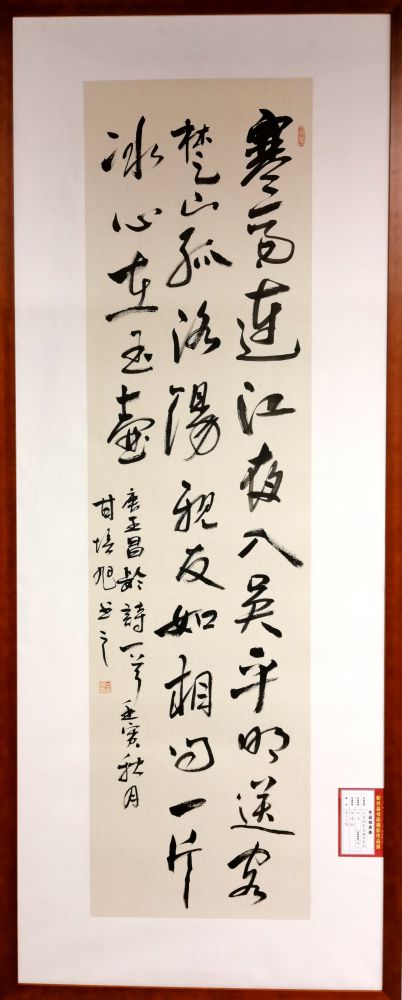 寒雨連江夜入吳平明送客
楚山孤洛陽親友如相問一片
冰心在玉壺
唐王昌齡詩一首 壬寅秋月
甘培旭书之